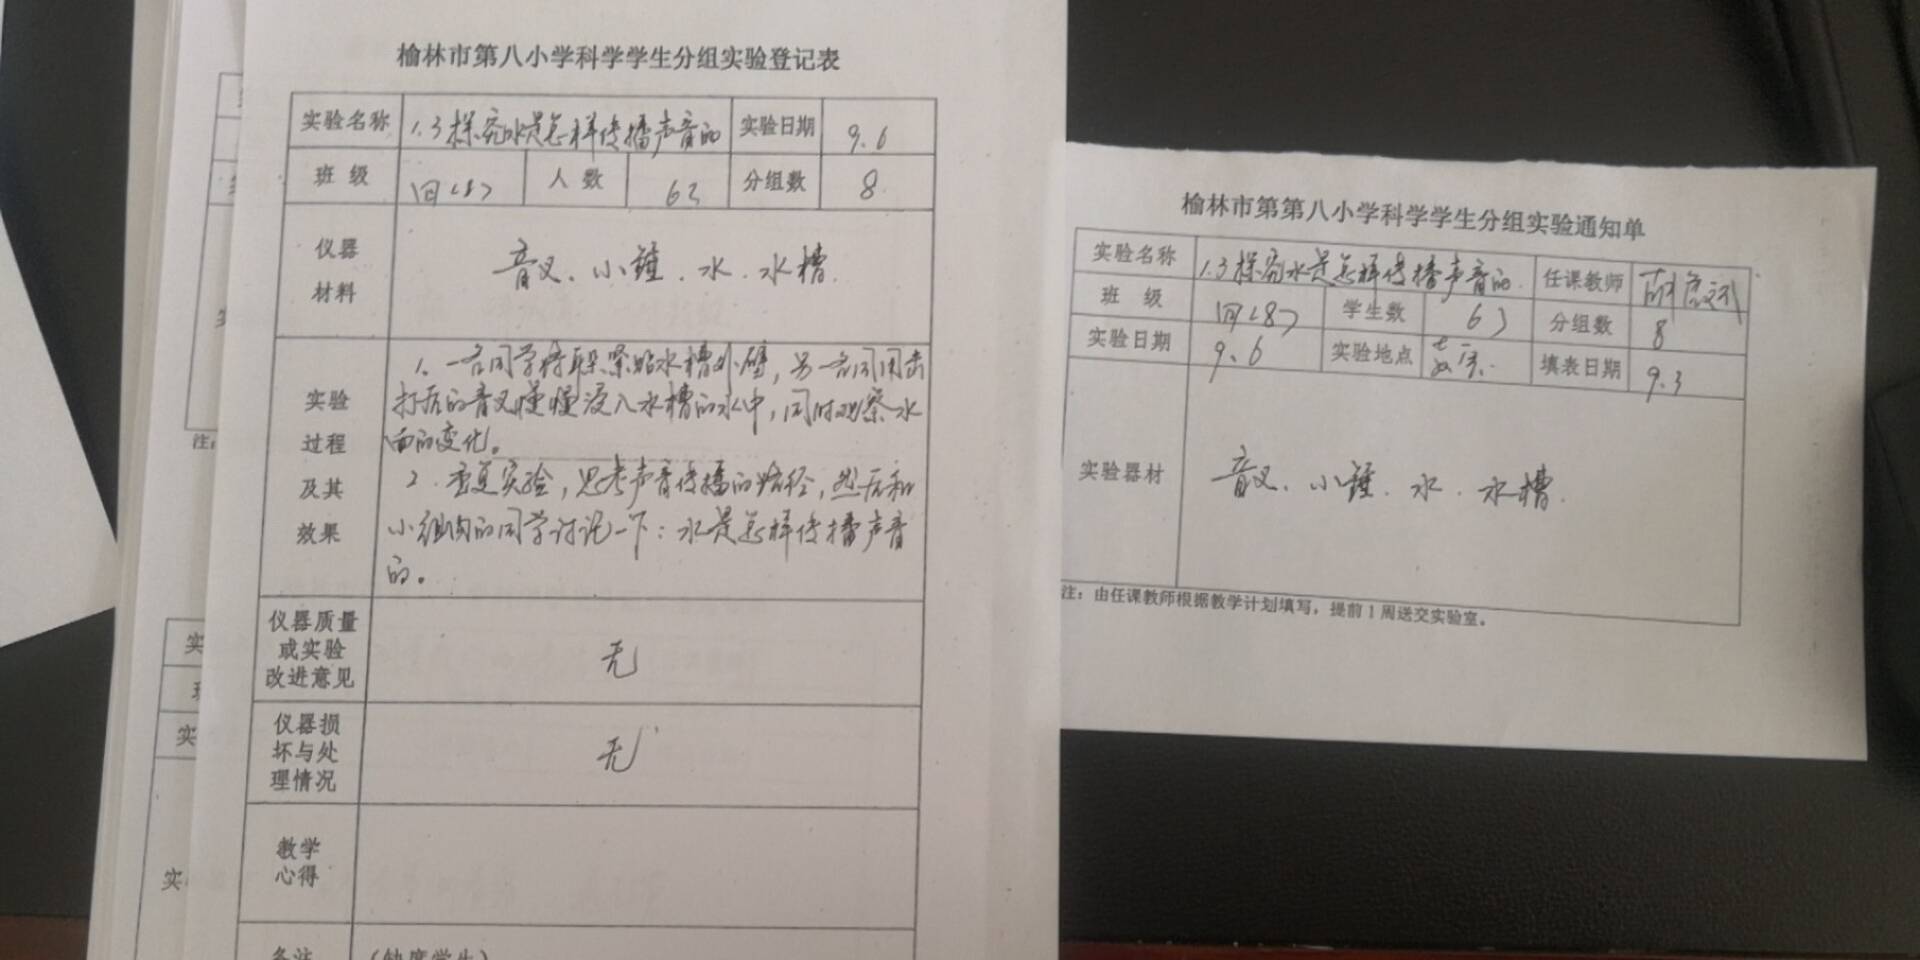 榆林市第八小学科学学生分组实验登记表
实验名称 1.3探究水是怎样传播声音的 实验日期 9.6
班 级 四<8> 人 数 63 分组数 8
仪器
材料
音叉、小锤、水、水槽
实验
过程
及其
效果
1、一名同学将耳朵紧贴水槽外壁，另一名同学用击
打后的音叉慢慢浸入水槽的水中，同时观察水
面的变化。
2、重复实验，思考声音传播的路径，然后和
小组内的同学讨论一下：水是怎样传播声音
的。
仪器质量
或实验
改进意见
无
仪器损
坏与处
理情况
无
教学
心得
备注 (缺席学生)
榆林市第第八小学科学学生分组实验通知单
实验名称 1.3探究水是怎样传播声音的 任课教师
班 级 四<8> 学生数 63 分组数 8
实验日期 9.6 实验地点 填表日期 9.3
实验器材
音叉、小锤、水、水槽
注：由任课教师根据教学计划填写，提前1周送交实验室。